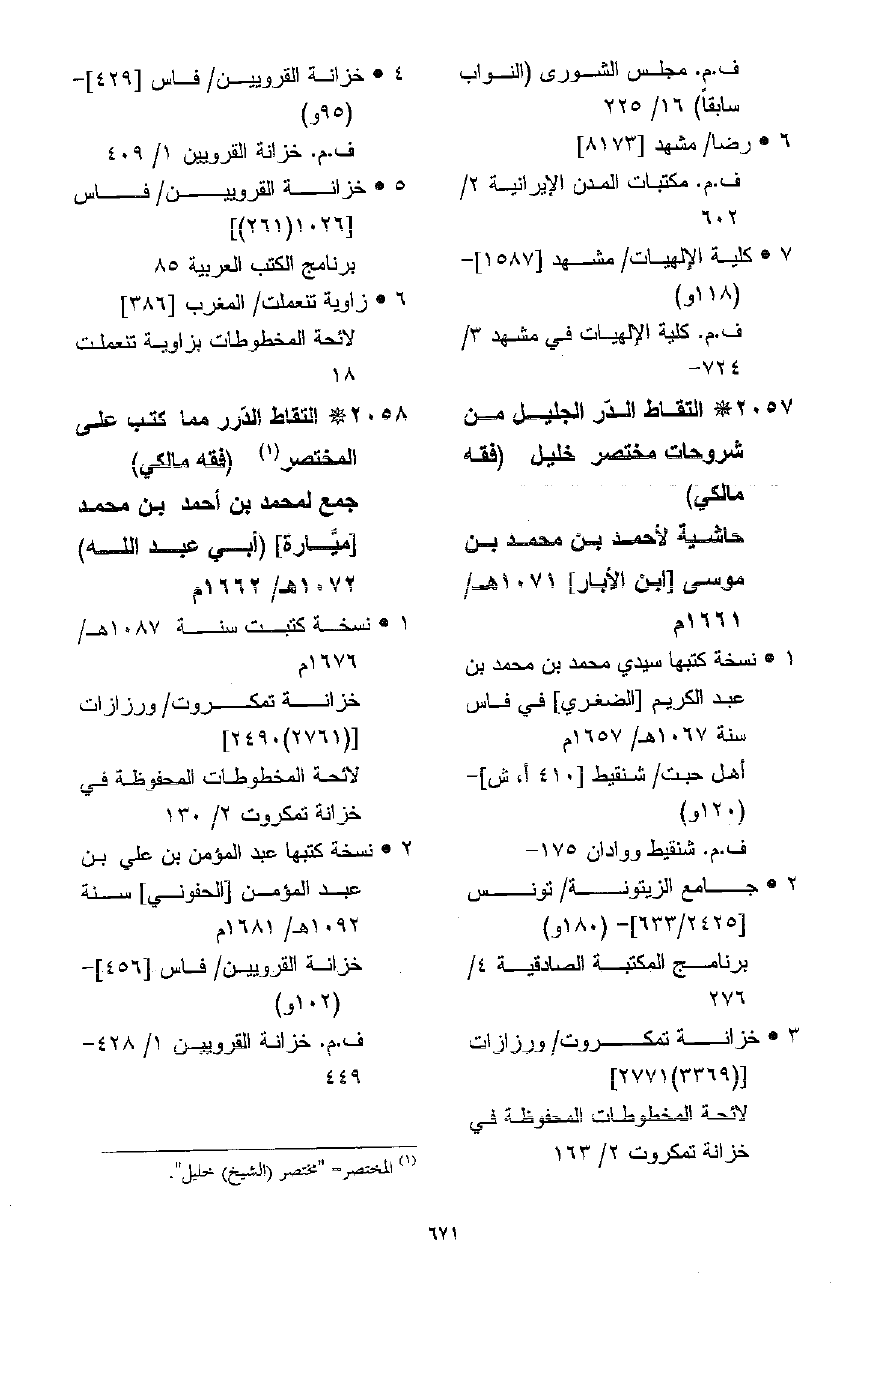 ف.م. مجلس الشورى (النواب
سابقاً) ١٦/ ٢٢٥
٦ • رضا/ مشهد [٨١٧٣]
ف.م. مكتبات المدن الإيرانية ٢/
٦٠٢
٧ • كلية الإلهيات/ مشهد [١٥٨٧]-
(١١٨و)
ف.م. كلية الإلهيات في مشهد ٣/
٧٢٤-
٢٠٥٧* التقاط الدّر الجليل من
شروحات مختصر خليل (فقه
مالكي)
حاشية لأحمد بن محمد بن
موسى [ابن الأبار] ١٠٧١هـ/
١٦٦١م
١ • نسخة كتبها سيدي محمد بن محمد بن
عبد الكريم [الضغري] في فاس
سنة ١٠٦٧هـ/ ١٦٥٧م
أهل حبت/ شنقيط [٤١٠ أ، ش]-
(١٢٠و)
ف.م. شنقيط ووادان ١٧٥-
٢ • جامع الزيتونة/ تونس
[٦٣٣/٢٤٢٥]- (١٨٠و)
برنامج المكتبة الصادقية ٤/
٢٧٦
٣ • خزانة تمكروت/ ورزازات
[(٣٣٦٩)٢٧٧١]
لائحة المخطوطات المحفوظة في
خزانة تمكروت ٢/ ١٦٣
٤ • خزانة القرويين/ فاس [٤٢٩]-
(٩٥و)
ف.م. خزانة القرويين ١/ ٤٠٩
٥ • خزانة القرويين/ فاس
[١٠٢٦(٢٦١)]
برنامج الكتب العربية ٨٥
٦ • زاوية تنعملت/ المغرب [٣٨٦]
لائحة المخطوطات بزاوية تنعملت
١٨
٢٠٥٨* التقاط الدّرر مما كتب على
المختصر(١) (فقه مالكي)
جمع لمحمد بن أحمد بن محمد
[ميَّارة] (أبي عبد الله)
١٠٧٢هـ/ ١٦٦٢م
١ • نسخة كتبت سنة ١٠٨٧هـ/
١٦٧٦م
خزانة تمكروت/ ورزازات
[(٢٧٦١)٢٤٩٠]
لائحة المخطوطات المحفوظة في
خزانة تمكروت ٢/ ١٣٠
٢ • نسخة كتبها عبد المؤمن بن علي بن
عبد المؤمن [الحفوني] سنة
١٠٩٢هـ/ ١٦٨١م
خزانة القرويين/ فاس [٤٥٦]-
(١٠٢و)
ف.م. خزانة القرويين ١/ ٤٢٨-
٤٤٩
(١) المختصر= "مختصر (الشيخ) خليل".
٦٧١